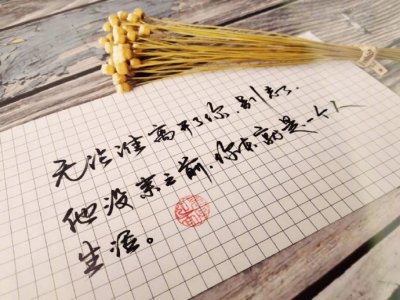 无论谁离开了你，别忘了，
他没来之前，你本就是一个人
生活。